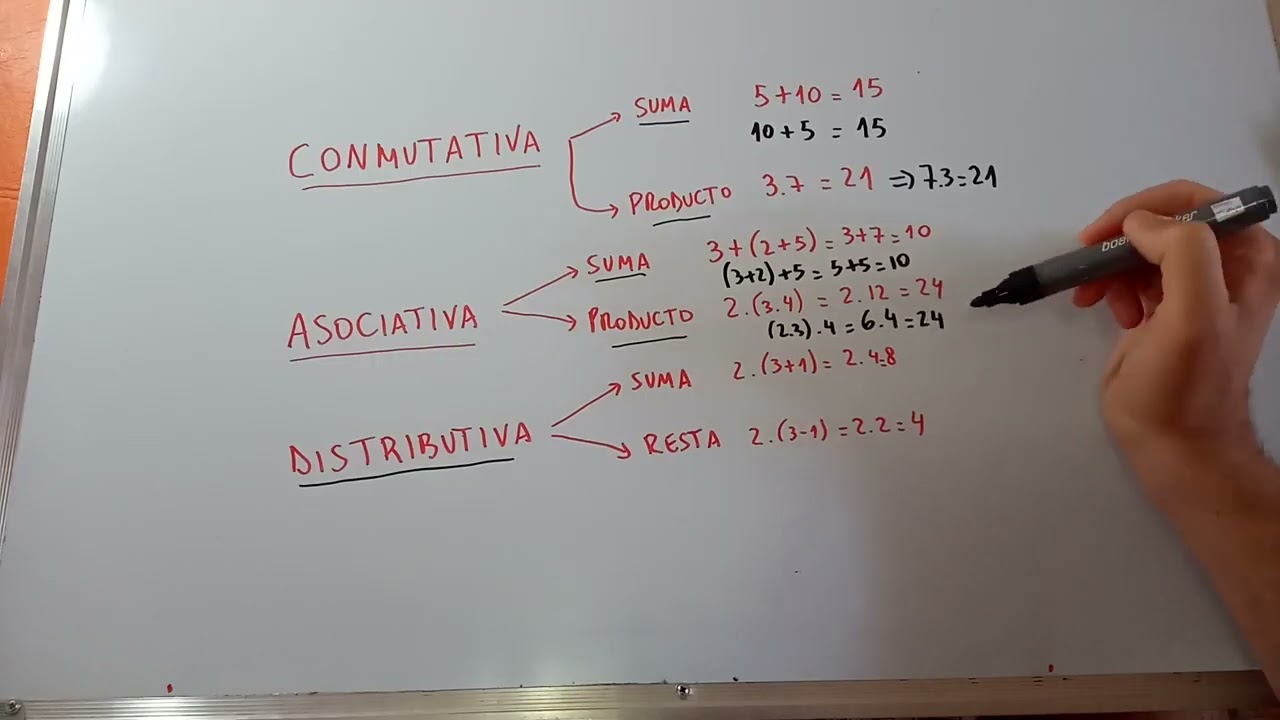 CONMUTATIVA
SUMA 5+10 = 15
10+5 = 15
PRODUCTO 3.7 = 21 => 7.3=21
ASOCIATIVA
SUMA 3+(2+5) = 3+7=10
(3+2)+5 = 5+5=10
PRODUCTO 2.(3.4) = 2.12 = 24
(2.3).4 = 6.4=24
DISTRIBUTIVA
SUMA 2.(3+1) = 2.4=8
RESTA 2.(3-1) = 2.2=4